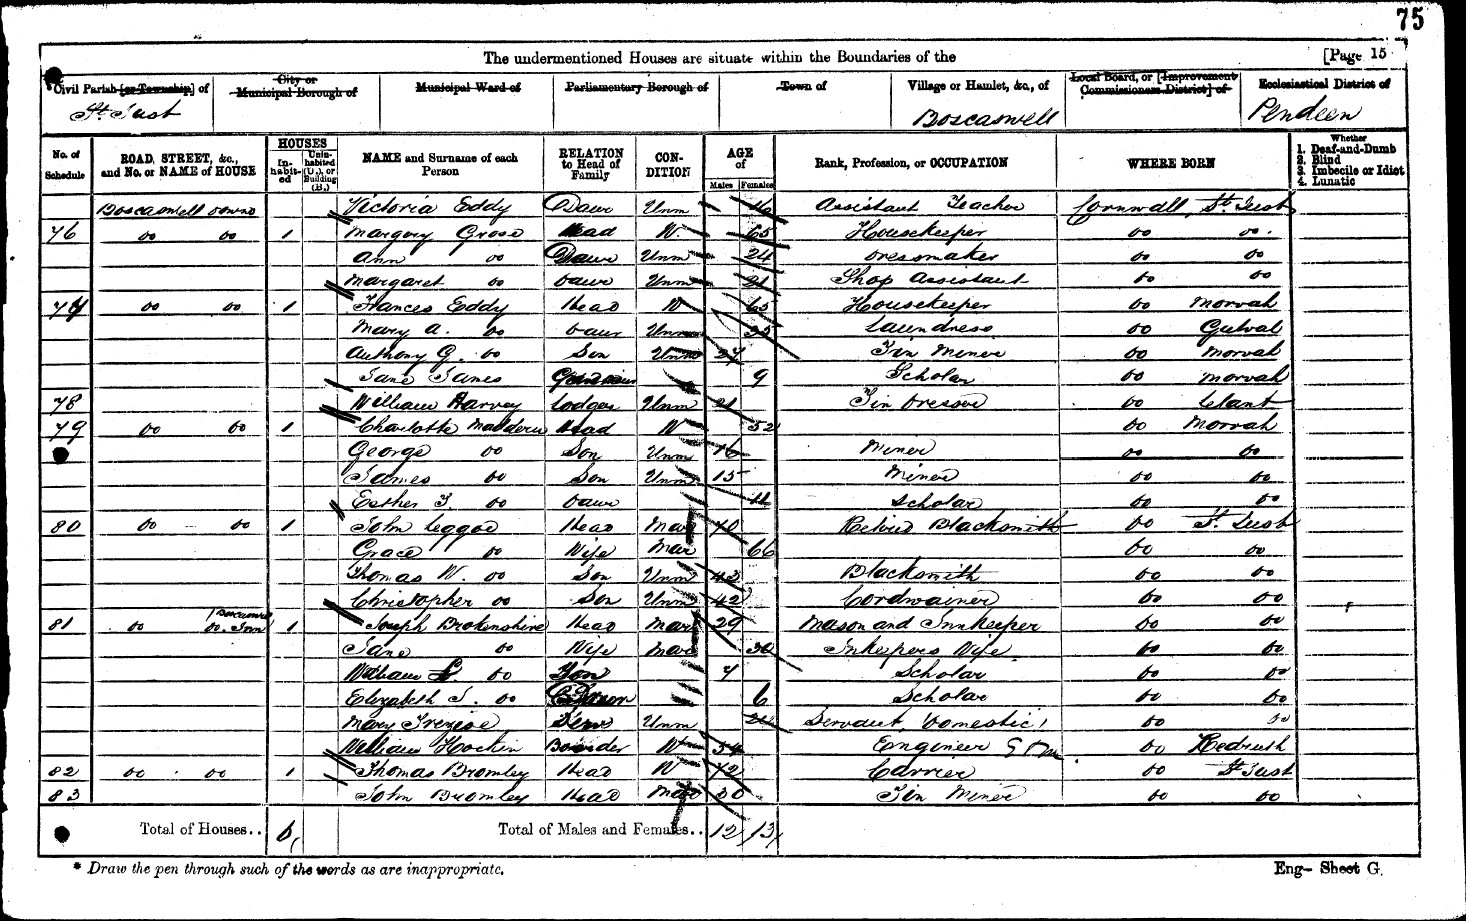 75
The undermentioned Houses are situate within the Boundaries of the [Page 15
Civil Parish [or Township] of City or Municipal Borough of Municipal Ward of Parliamentary Borough of Town of Village or Hamlet, &c., of Local Board, or [Improvement Commissioners District] of Ecclesiastical District of
St. Just Boscaswell Pendeen
No. of Schedule ROAD, STREET, &c., and No. or NAME of HOUSE HOUSES In-habit-ed Unin-habited (U.), or Building (B.) NAME and Surname of each Person RELATION to Head of Family CON-DITION AGE of Males Females Rank, Profession, or OCCUPATION WHERE BORN Whether 1. Deaf-and-Dumb 2. Blind 3. Imbecile or Idiot 4. Lunatic
Boscaswell Downs Victoria Eddy Daur Unm 16 Assistant Teacher Cornwall, St. Just
76 do do 1 Margery Grose Head W. 65 Housekeeper do do.
Ann do Daur Unm 24 Dressmaker do do
Margaret do Daur Unm 21 Shop Assistant do do
77 do do 1 Frances Eddy Head W 65 Housekeeper do Morvah
Mary A. do Daur Unm 35 Laundress do Gulval
Anthony G. do Son Unm 27 Tin Miner do Morvah
Jane James 9 Scholar do Morvah
78 William Harvey Lodger Unm 21 Tin Dresser do Lelant
79 do do 1 Charlotte Maddern Head W 52 do Morvah
George do Son Unm 16 Miner do do
James do Son Unm 15 Miner do do
Esther J. do Daur 11 Scholar do do
80 do do 1 John Leggoe Head Mar 70 Retired Blacksmith do St. Just
Grace do Wife Mar 66 do do
Thomas W. do Son Unm 43 Blacksmith do do
Christopher do Son Unm 42 Cordwainer do do
81 do Boscaswell do. Inn 1 Joseph Brokenshire Head Mar 29 Mason and Innkeeper do do
Jane do Wife Mar 30 Inkeepers Wife do do
William do Son 7 Scholar do do
Elizabeth J. do 6 Scholar do do
Mary Trezise Serv Unm Servant, Domestic do do
William Hockin Boarder W 54 Engineer do Redruth
82 do do 1 Thomas Bromley Head W 72 Carrier do St Just
83 John Bromley Head Mar 30 Tin Miner do do
Total of Houses.. 6 Total of Males and Females.. 12 13
* Draw the pen through such of the words as are inappropriate. Eng— Sheet G.